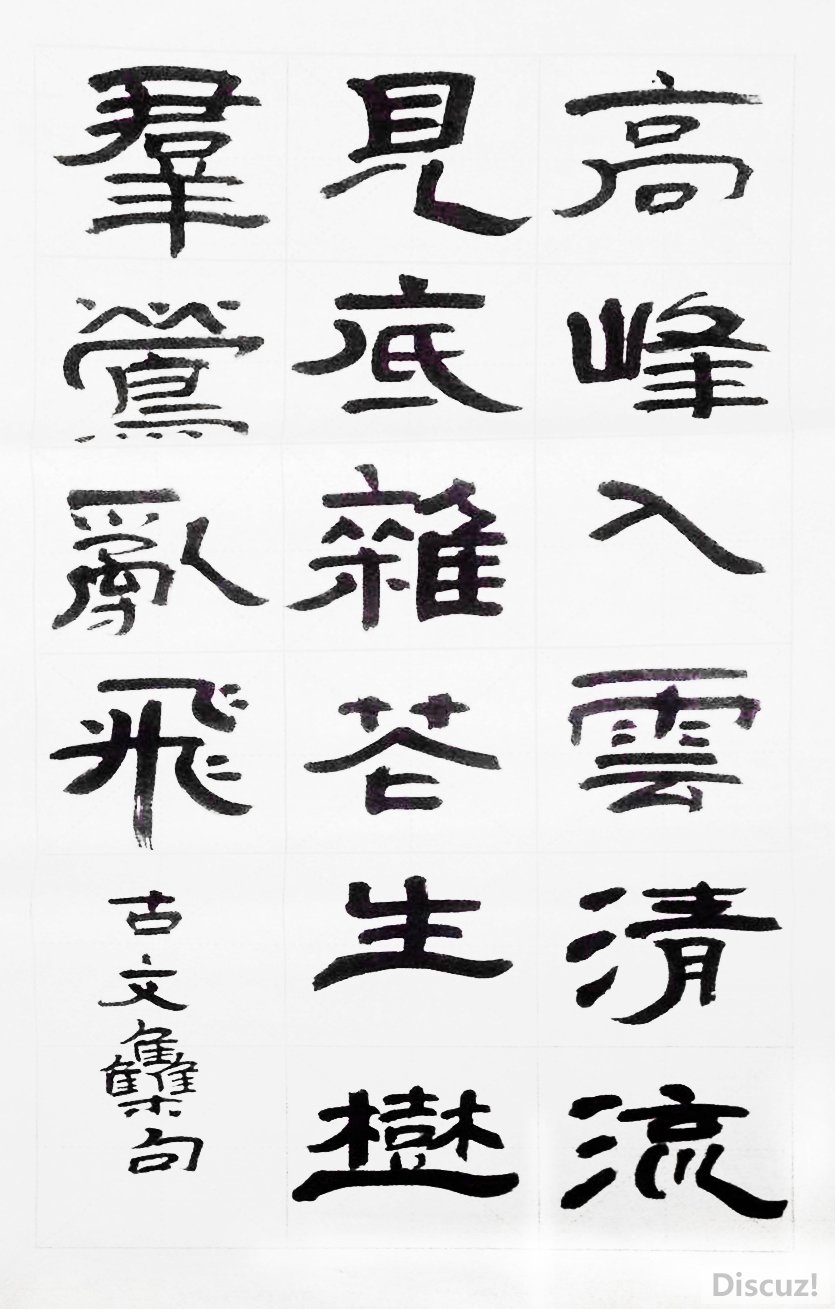 高峰入雲清流
見底雜花生樹
羣鶯亂飛
古文雧句
Discuz!